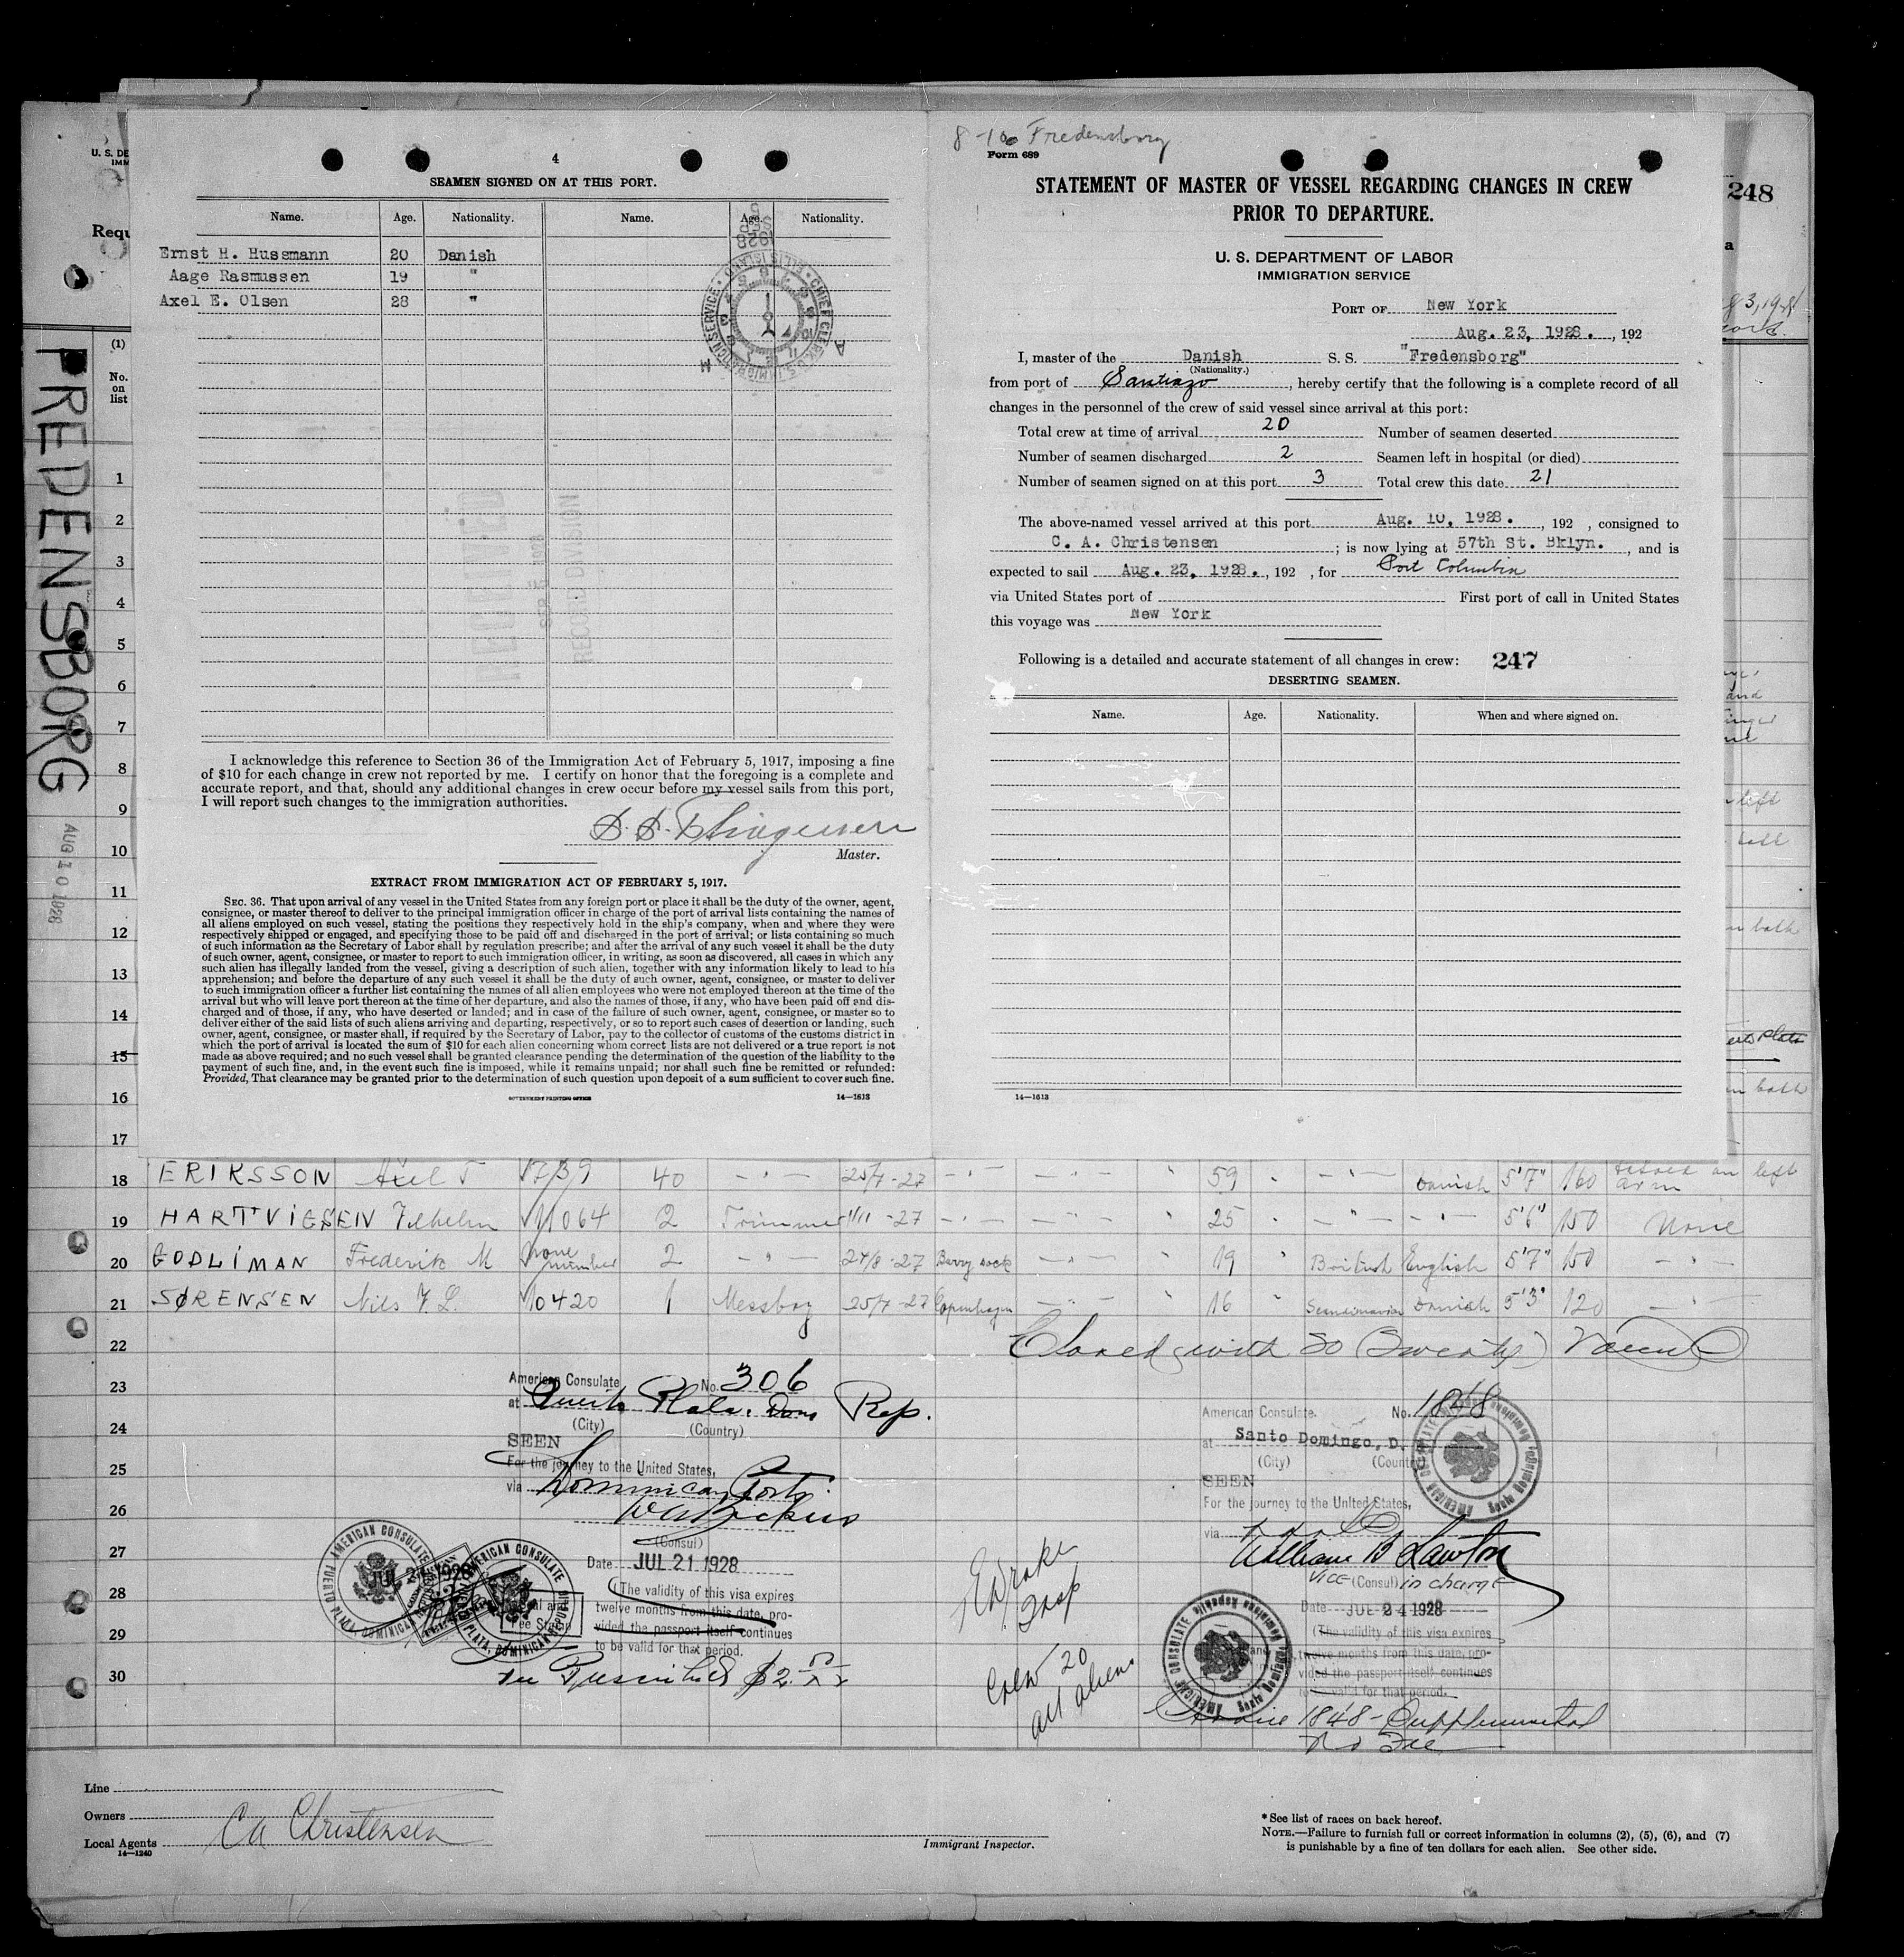 4
SEAMEN SIGNED ON AT THIS PORT.
Name. Age. Nationality. Name. Age. Nationality.
Ernst H. Hussmann 20 Danish
Aage Rasmussen 19 "
Axel E. Olsen 28 "
I acknowledge this reference to Section 36 of the Immigration Act of February 5, 1917, imposing a fine
of $10 for each change in crew not reported by me. I certify on honor that the foregoing is a complete and
accurate report, and that, should any additional changes in crew occur before my vessel sails from this port,
I will report such changes to the immigration authorities.
Master.
EXTRACT FROM IMMIGRATION ACT OF FEBRUARY 5, 1917.
SEC. 36. That upon arrival of any vessel in the United States from any foreign port or place it shall be the duty of the owner, agent,
consignee, or master thereof to deliver to the principal immigration officer in charge of the port of arrival lists containing the names of
all aliens employed on such vessel, stating the positions they respectively hold in the ship's company, when and where they were
respectively shipped or engaged, and specifying those to be paid off and discharged in the port of arrival; or lists containing so much
of such information as the Secretary of Labor shall by regulation prescribe; and after the arrival of any such vessel it shall be the duty
of such owner, agent, consignee, or master to report to such immigration officer, in writing, as soon as discovered, all cases in which any
such alien has illegally landed from the vessel, giving a description of such alien, together with any information likely to lead to his
apprehension; and before the departure of any such vessel it shall be the duty of such owner, agent, consignee, or master to deliver
to such immigration officer a further list containing the names of all alien employees who were not employed thereon at the time of the
arrival but who will leave port thereon at the time of her departure, and also the names of those, if any, who have been paid off and dis-
charged and of those, if any, who have deserted or landed; and in case of the failure of such owner, agent, consignee, or master so to
deliver either of the said lists of such aliens arriving and departing, respectively, or so to report such cases of desertion or landing, such
owner, agent, consignee, or master shall, if required by the Secretary of Labor, pay to the collector of customs of the customs district in
which the port of arrival is located the sum of $10 for each alien concerning whom correct lists are not delivered or a true report is not
made as above required; and no such vessel shall be granted clearance pending the determination of the question of the liability to the
payment of such fine, and, in the event such fine is imposed, while it remains unpaid; nor shall such fine be remitted or refunded:
Provided, That clearance may be granted prior to the determination of such question upon deposit of a sum sufficient to cover such fine.
GOVERNMENT PRINTING OFFICE 14—1613
8-10 Fredensborg
Form 689
STATEMENT OF MASTER OF VESSEL REGARDING CHANGES IN CREW
PRIOR TO DEPARTURE.
U. S. DEPARTMENT OF LABOR
IMMIGRATION SERVICE
PORT OF New York
Aug. 23, 1928. , 192
I, master of the Danish S. S. "Fredensborg"
(Nationality.)
from port of Santiago , hereby certify that the following is a complete record of all
changes in the personnel of the crew of said vessel since arrival at this port:
Total crew at time of arrival 20 Number of seamen deserted
Number of seamen discharged 2 Seamen left in hospital (or died)
Number of seamen signed on at this port 3 Total crew this date 21
The above-named vessel arrived at this port Aug. 10, 1928. , 192 , consigned to
C. A. Christensen ; is now lying at 57th St. Bklyn. , and is
expected to sail Aug. 23, 1928. , 192 , for Port Columbia
via United States port of First port of call in United States
this voyage was New York
Following is a detailed and accurate statement of all changes in crew: 247
DESERTING SEAMEN.
Name. Age. Nationality. When and where signed on.
14—1613
248
U. S. DE
IMM
Requ
FREDENSBORG
AUG 10 1928
(1)
No.
on
list
1
2
3
4
5
6
7
8
9
10
11
12
13
14
15
16
17
18 ERIKSSON Axel T 7/39 40 25/7-27 59 Danish 5'7" 160 left arm
19 HARTVIGSEN Vilhelm 11064 2 Trimmer 1/11-27 25 5'6" 150 None
20 GODLIMAN Frederik M none number 2 24/8-27 Barry dock 19 British English 5'7" 150
21 SØRENSEN Nils F. L. 10420 1 Messboy 25/7-27 Copenhagen 16 Scandinavian Danish 5'3" 120
22 Closed with 20 (Twenty)
23
24
25
26
27
28
29
30
American Consulate No. 306
at Puerto Plata, Dom Rep.
(City) (Country)
SEEN
For the journey to the United States,
via Dominican Ports
(Consul)
Date JUL 21 1928
(The validity of this visa expires
twelve months from this date, pro-
vided the passport itself continues
to be valid for that period.
AMERICAN CONSULATE
PUERTO PLATA, DOMINICAN REPUBLIC
American Consulate. No. 1848
at Santo Domingo, D.
(City) (Country)
SEEN
For the journey to the United States,
via
William B Lawton
VICE (Consul) in charge
Date JUL 24 1928
(The validity of this visa expires
twelve months from this date, pro-
vided the passport itself continues
to be valid for that period.
Service 1848- Supplemental
No Fee
Crew 20
all aliens
Line
Owners
Local Agents CA Christensen
14—1240
Immigrant Inspector.
*See list of races on back hereof.
NOTE.—Failure to furnish full or correct information in columns (2), (5), (6), and (7)
is punishable by a fine of ten dollars for each alien. See other side.